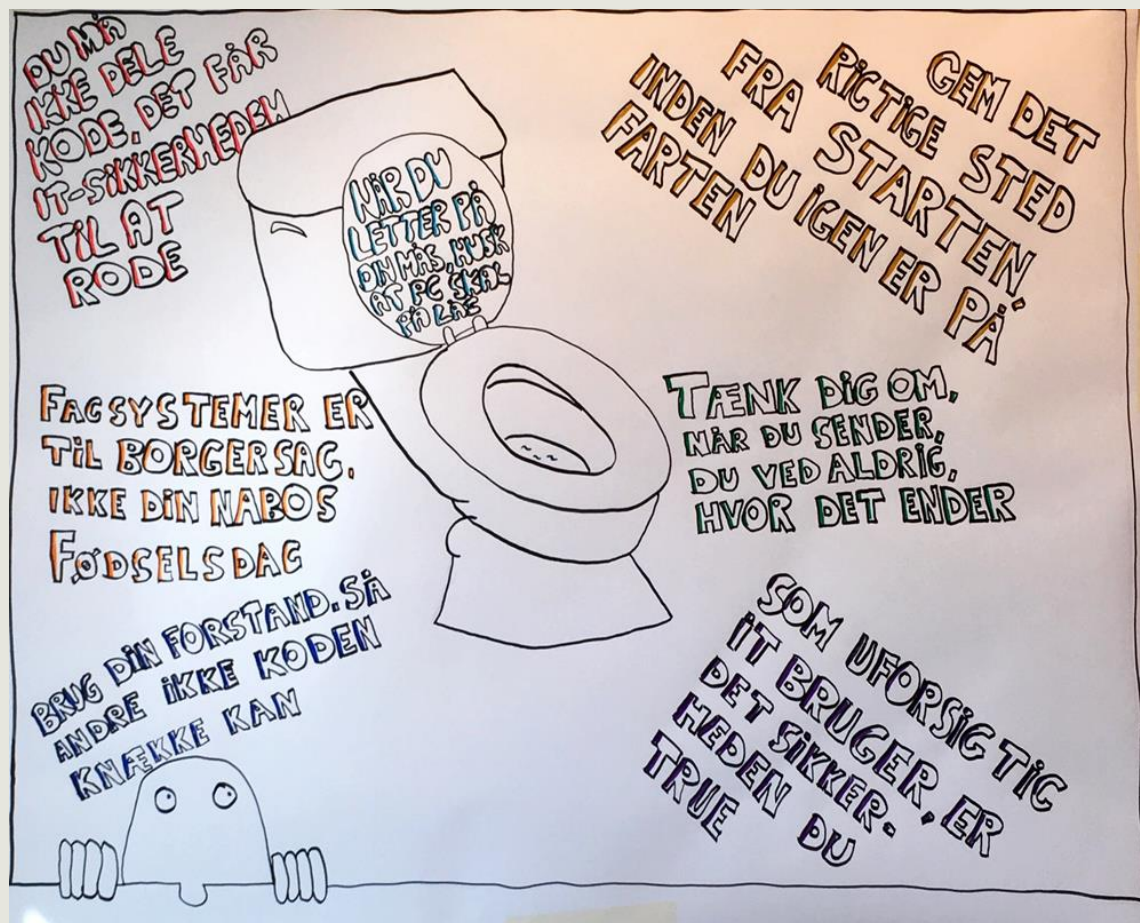 DU MÅ
IKKE DELE
KODE, DET FÅR
IT-SIKKERHEDEN
TIL AT
RODE
NÅR DU
LETTER PÅ
DIN MÅS, HUSK
AT PC SKAL
PÅ LÅS
GEM DET
RIGTIGE STED
FRA STARTEN,
INDEN DU IGEN ER PÅ
FARTEN
FAGSYSTEMER ER
TIL BORGERSAG,
IKKE DIN NABOS
FØDSELSDAG
TÆNK DIG OM,
NÅR DU SENDER,
DU VED ALDRIG,
HVOR DET ENDER
BRUG DIN FORSTAND. SÅ
ANDRE IKKE KODEN
KNÆKKE KAN
SOM UFORSIGTIG
IT BRUGER, ER
DET SIKKER-
HEDEN DU
TRUE